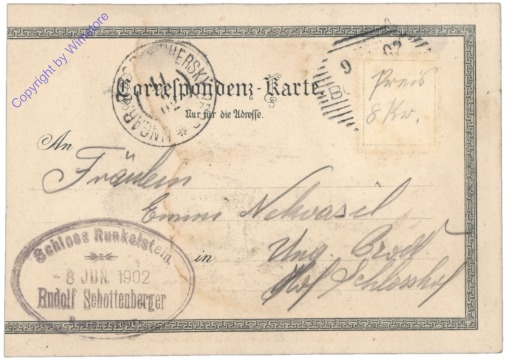 Copyright by Winestore
9 02
Preis
8 Kr.
11
02
UNGAR.
Correspondenz-Karte
Nur für die Adresse.
An
Fräulein
Emmi Nekvasil
in Ung. Brod
Hof Schlosshof
Schloss Runkelstein
- 8 JUN. 1902
Rudolf Schottenberger